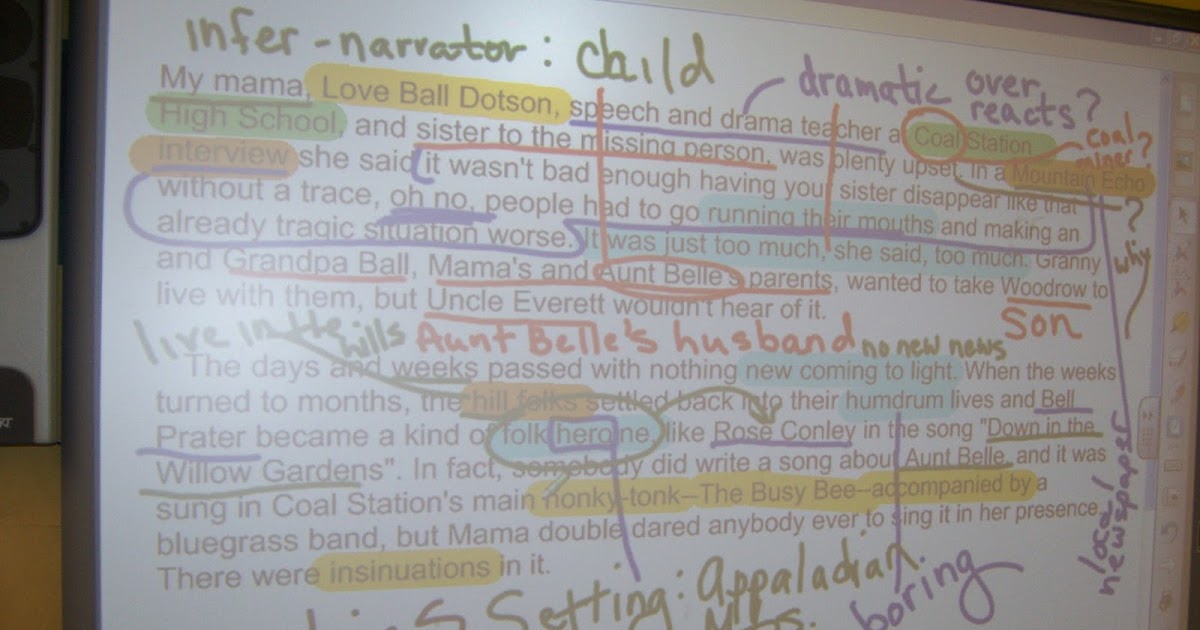 infer - narrator : child
dramatic over
reacts?
My mama, Love Ball Dotson, speech and drama teacher a Coal Station
High School, and sister to the missing person, was plenty upset. In a Mountain Echo
coal?
miner
interview she said it wasn't bad enough having your sister disappear like that
without a trace, oh no, people had to go running their mouths and making an
?
why
already tragic situation worse. It was just too much, she said, too much. Granny
and Grandpa Ball, Mama's and Aunt Belle's parents, wanted to take Woodrow to
live with them, but Uncle Everett wouldn't hear of it.
Son
live in the
hills
Aunt Belle's husband
no new news
The days and weeks passed with nothing new coming to light. When the weeks
turned to months, the hill folks settled back into their humdrum lives and Bell
Prater became a kind of folk heroine, like Rose Conley in the song "Down in the
Willow Gardens". In fact, somebody did write a song about Aunt Belle, and it was
sung in Coal Station's main honky-tonk--The Busy Bee--accompanied by a
bluegrass band, but Mama double dared anybody ever to sing it in her presence
There were insinuations in it.
local
newspaper
Setting: Appaladian
Mts.
boring